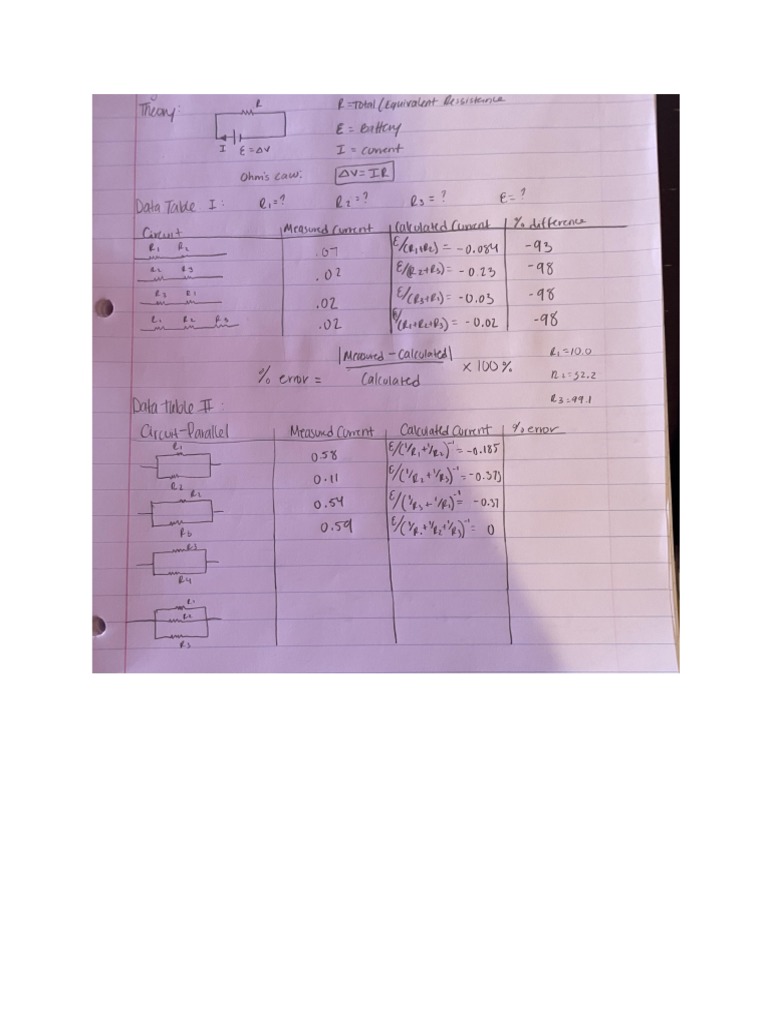 Theory: R R = Total (Equivalent Ressistance
I ε = ΔV ε = Battery
I = Current
Ohm's Law: ΔV = IR
Data Table I: R₁=? R₂=? R₃=? ε=?
Circuit Measured Current Calculated Current % difference
R₁ R₂ .07 ε/(R₁+R₂) = -0.084 -93
R₂ R₃ .02 ε/(R₂+R₃) = -0.23 -98
R₃ R₁ .02 ε/(R₃+R₁) = -0.03 -98
R₁ R₂ R₃ .02 ε/(R₁+R₂+R₃) = -0.02 -98
% error = |Measured - Calculated| / Calculated × 100%
R₁=10.0
R₂=52.2
R₃=99.1
Data Table II:
Circuit-Parallel Measured Current Calculated Current % error
R₁ R₂ 0.58 ε/(1/R₁+1/R₂)⁻¹ = -0.185
0.11 ε/(1/R₂+1/R₃)⁻¹ = -0.373
R₂ 0.54 ε/(1/R₃+1/R₁)⁻¹ = -0.37
0.59 ε/(1/R₁+1/R₂+1/R₃)⁻¹ = 0
R₃
R4
R₁
R₂
R₃